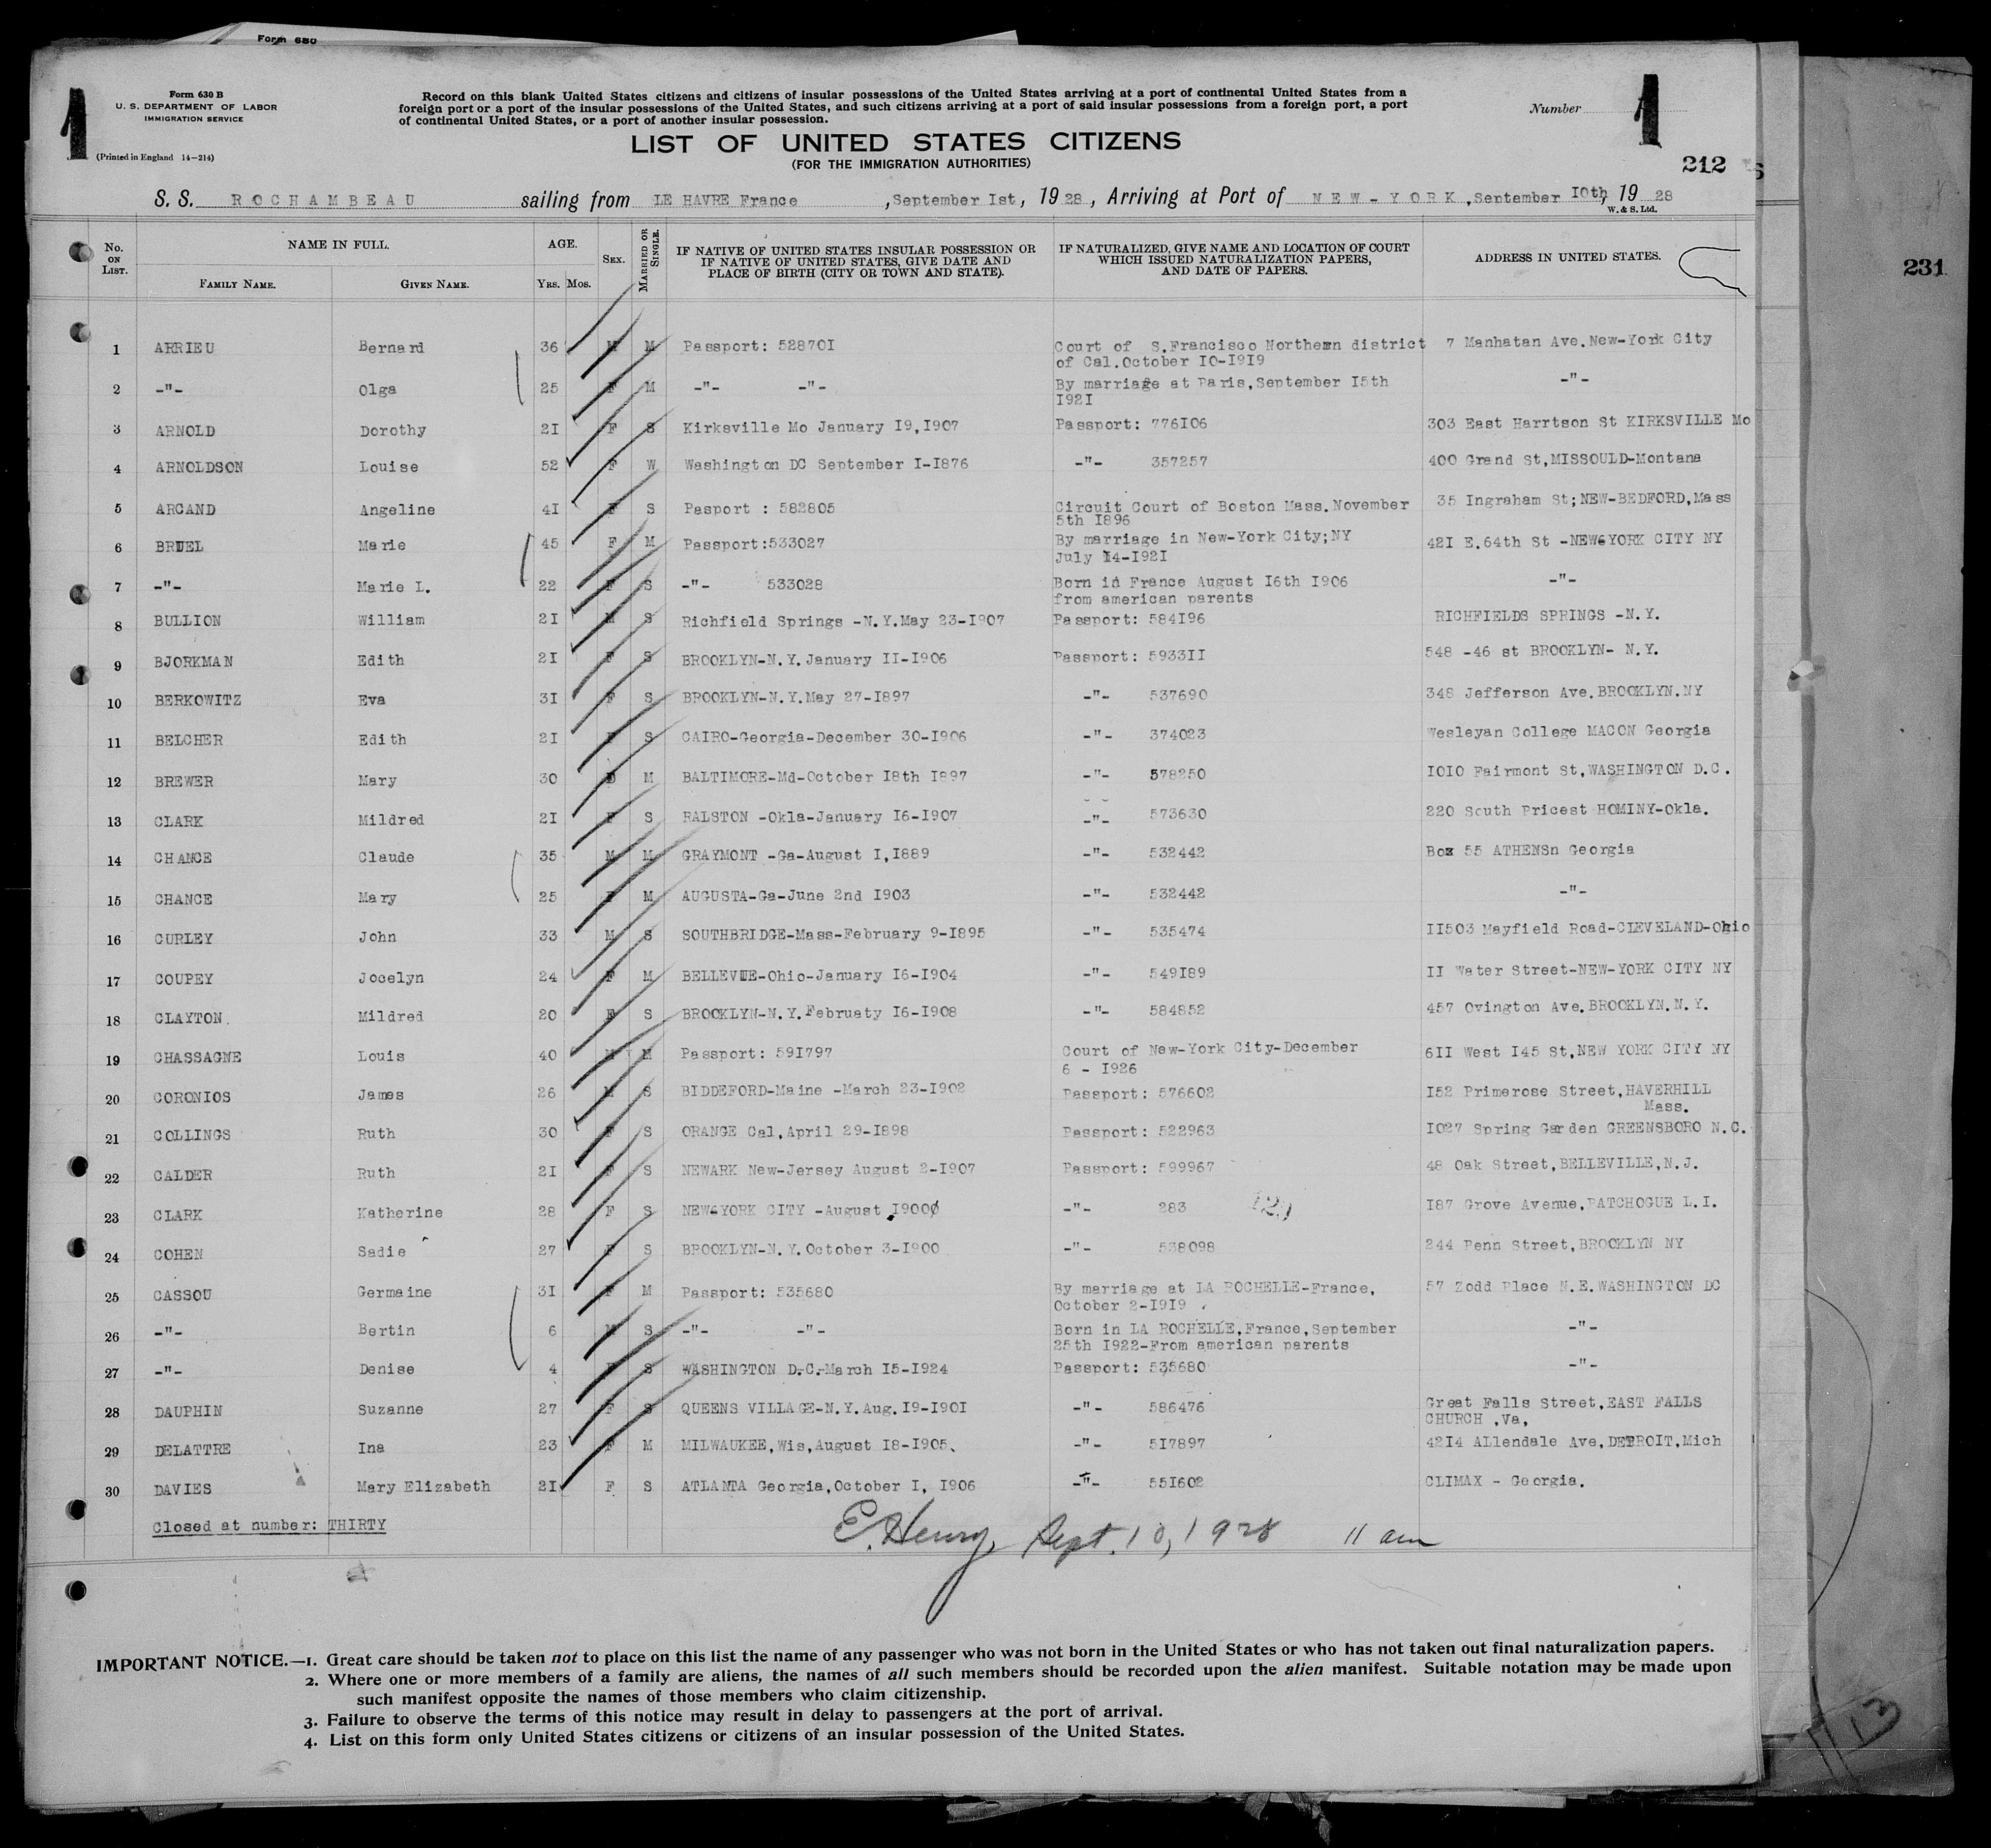 Form 630
1
Form 630 B
U. S. DEPARTMENT OF LABOR
IMMIGRATION SERVICE
(Printed in England 14—214)
Record on this blank United States citizens and citizens of insular possessions of the United States arriving at a port of continental United States from a
foreign port or a port of the insular possessions of the United States, and such citizens arriving at a port of said insular possessions from a foreign port, a port
of continental United States, or a port of another insular possession.
Number 1
LIST OF UNITED STATES CITIZENS
(FOR THE IMMIGRATION AUTHORITIES)
212
231
S. S. ROCHAMBEAU sailing from LE HAVRE France ,September Ist, 19 28, Arriving at Port of NEW-YORK,September IOth, 19 28
W. & S. Ltd.
No. ON LIST. NAME IN FULL. AGE. SEX. MARRIED OR SINGLE. IF NATIVE OF UNITED STATES INSULAR POSSESSION OR IF NATIVE OF UNITED STATES, GIVE DATE AND PLACE OF BIRTH (CITY OR TOWN AND STATE). IF NATURALIZED, GIVE NAME AND LOCATION OF COURT WHICH ISSUED NATURALIZATION PAPERS, AND DATE OF PAPERS. ADDRESS IN UNITED STATES.
FAMILY NAME. GIVEN NAME. YRS. MOS.
1 ARRIEU Bernard 36 M M Passport: 52870I Court of S.Francisco Northern district 7 Manhatan Ave.New-York City
of Cal.October IO-I9I9
2 -"- Olga 25 F M -"- -"- By marriage at Paris,September I5th -"-
I92I
3 ARNOLD Dorothy 2I F S Kirksville Mo January I9,I907 Passport: 776I06 303 East Harrtson St KIRKSVILLE Mo
4 ARNOLDSON Louise 52 F W Washington DC September I-I876 -"- 357257 400 Grand St,MISSOULD-Montana
5 ARCAND Angeline 4I F S Pasport : 582805 Circuit Court of Boston Mass.November 35 Ingraham St;NEW-BEDFORD,Mass
5th I896
6 BRUEL Marie 45 F M Passport:533027 By marriage in New-York City;NY 42I E.64th St -NEW-YORK CITY NY
July I4-I92I
7 -"- Marie L. 22 F S -"- 533028 Born in France August I6th I906 -"-
from american parents
8 BULLION William 2I M S Richfield Springs -N.Y.May 23-I907 Passport: 584I96 RICHFIELDS SPRINGS -N.Y.
9 BJORKMAN Edith 2I F S BROOKLYN-N.Y.January II-I906 Passport: 5933II 548 -46 st BROOKLYN- N.Y.
10 BERKOWITZ Eva 3I F S BROOKLYN-N.Y.May 27-I897 -"- 537690 348 Jefferson Ave.BROOKLYN.NY
11 BELCHER Edith 2I F S CAIRO-Georgia-December 30-I906 -"- 374023 Wesleyan College MACON Georgia
12 BREWER Mary 30 M BALTIMORE-Md-October I8th I897 -"- 578250 IOIO Fairmont St,WASHINGTON D.C.
13 CLARK Mildred 2I F S RALSTON -Okla-January I6-I907 -"- 573630 220 South Pricest HOMINY-Okla.
14 CHANCE Claude 35 M M GRAYMONT -Ga-August I,I889 -"- 532442 Box 55 ATHENSn Georgia
15 CHANCE Mary 25 F M AUGUSTA-Ga-June 2nd I903 -"- 532442 -"-
16 CURLEY John 33 M S SOUTHBRIDGE-Mass-February 9-I895 -"- 535474 II503 Mayfield Road-CLEVELAND-Ohio
17 COUPEY Jocelyn 24 F M BELLEVUE-Ohio-January I6-I904 -"- 549I89 II Water Street-NEW-YORK CITY NY
18 CLAYTON. Mildred 20 F S BROOKLYN-N.Y.Februaty I6-I908 -"- 584852 457 Ovington Ave.BROOKLYN.N.Y.
19 CHASSAGNE Louis 40 M M Passport: 59I797 Court of New-York City-December 6II West I45 St,NEW YORK CITY NY
6 - I926
20 CORONIOS James 26 M S BIDDEFORD-Maine -March 23-I902 Passport: 576602 I52 Primerose Street,HAVERHILL
Mass.
21 COLLINGS Ruth 30 F S ORANGE Cal,April 29-I898 Passport: 522963 I027 Spring Garden GREENSBORO N.C.
22 CALDER Ruth 2I F S NEWARK New-Jersey August 2-I907 Passport: 599967 48 Oak Street,BELLEVILLE,N.J.
23 CLARK Katherine 28 F S NEW-YORK CITY -August I900 -"- 283 I87 Grove Avenue,PATCHOGUE L.I.
24 COHEN Sadie 27 F S BROOKLYN-N.Y.October 3-I900 -"- 538098 244 Penn Street,BROOKLYN NY
25 CASSOU Germaine 3I F M Passport: 535680 By marriage at LA ROCHELLE-France, 57 Zodd Place N.E.WASHINGTON DC
October 2-I9I9
26 -"- Bertin 6 M S -"- -"- Born in LA ROCHELLE,France,September -"-
25th I922-From american parents
27 -"- Denise 4 F S WASHINGTON D.C.-March I5-I924 Passport: 535680 -"-
28 DAUPHIN Suzanne 27 F S QUEENS VILLAGE-N.Y.Aug.I9-I90I -"- 586476 Great Falls Street,EAST FALLS
CHURCH ,Va,
29 DELATTRE Ina 23 F M MILWAUKEE,Wis,August I8-I905. -"- 5I7897 42I4 ALlendale Ave,DETROIT,Mich
30 DAVIES Mary Elizabeth 2I F S ATLANTA Georgia,October I, I906 -"- 55I602 CLIMAX - Georgia.
Closed at number: THIRTY
E. Henry, Sept. 10, 1928 11 am
IMPORTANT NOTICE.—1. Great care should be taken not to place on this list the name of any passenger who was not born in the United States or who has not taken out final naturalization papers.
2. Where one or more members of a family are aliens, the names of all such members should be recorded upon the alien manifest. Suitable notation may be made upon
such manifest opposite the names of those members who claim citizenship.
3. Failure to observe the terms of this notice may result in delay to passengers at the port of arrival.
4. List on this form only United States citizens or citizens of an insular possession of the United States.
13